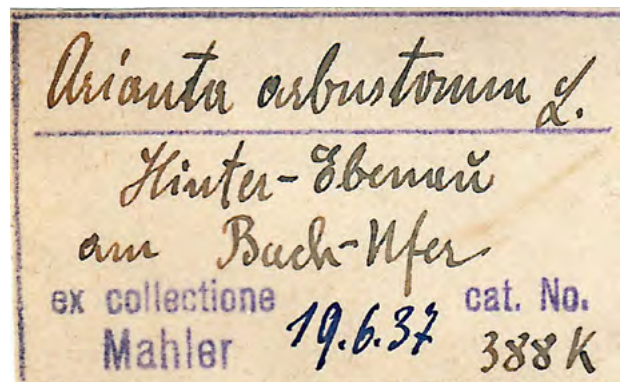 Arianta arbustorum L.
Hinter-Ebenau
am Bach-Ufer
ex collectione 19.6.37 cat. No.
Mahler 388 K